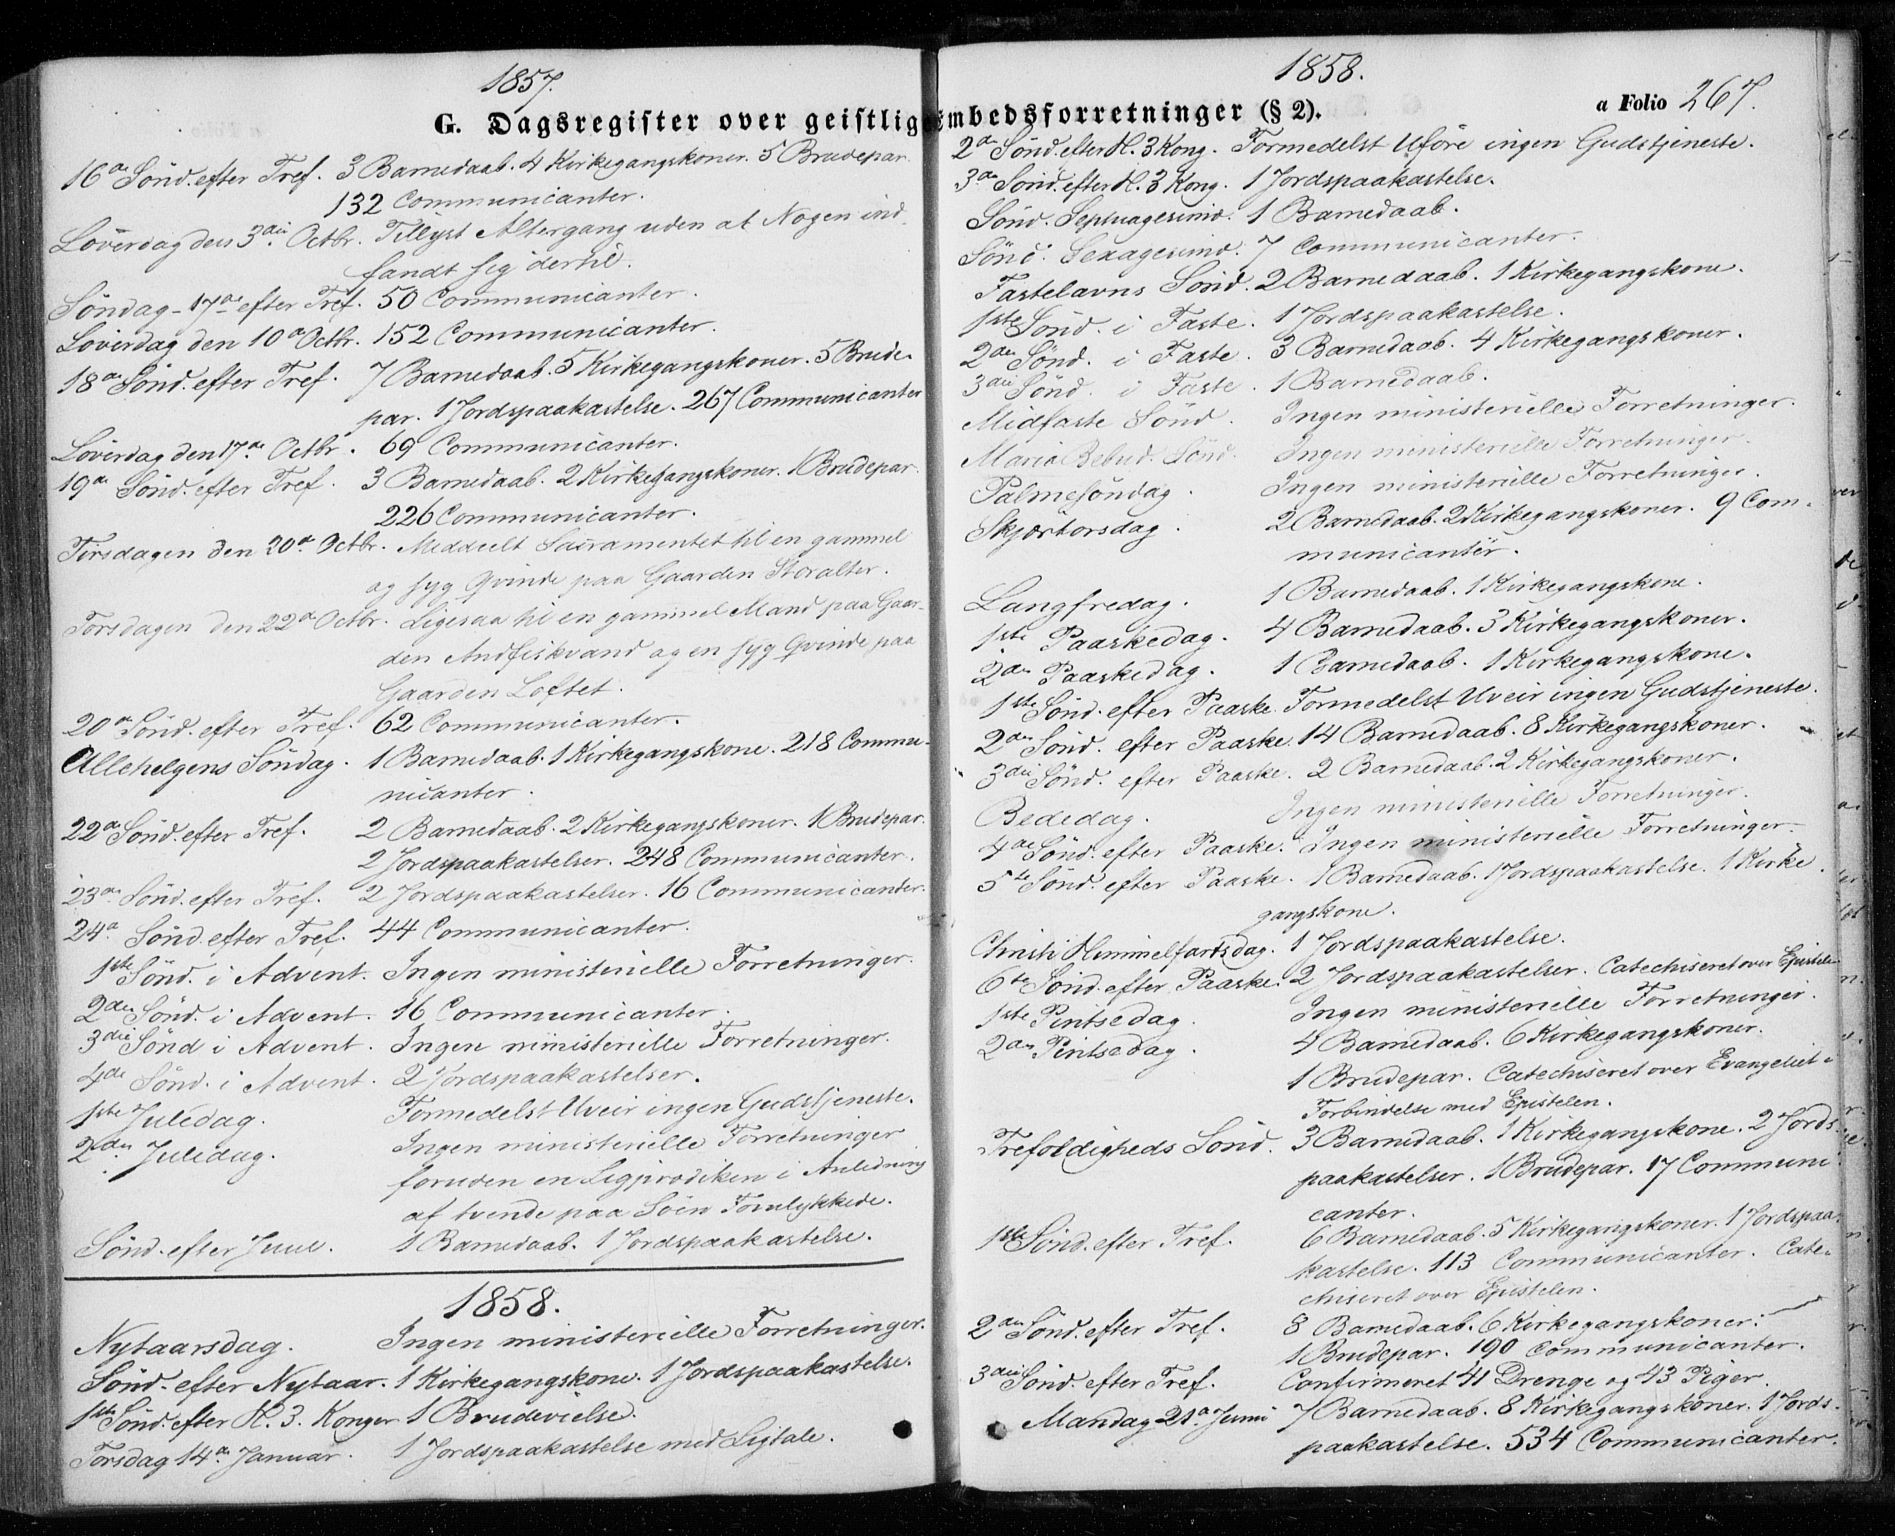 1857.
G. Dagsregister over geistlig
16de Sönd. efter Tref. 3 Barnedaab. 4 Kirkegangskoner. 5 Brudepar
132 Communicanter.
Löverdag den 3die Octbr. Tillyst Altergang uden at Nogen ind-
fandt sig dertil.
Söndag 17de efter Tref. 50 Communicanter.
Löverdag den 10de Octbr. 152 Communicanter.
18de Sönd. efter Tref. 7 Barnedaab. 5 Kirkegangskoner. 5 Brude-
par. 1 Jordspaakastelse. 267 Communicanter
Löverdag den 17de Octbr. 69 Communicanter.
19de Sönd. efter Tref. 3 Barnedaab. 2 Kirkegangskoner. 1 Brudepar.
226 Communicanter.
Tirsdagen den 20de Octbr. Meddeelt Sacramentet til en gammel
og syg Qvinde paa Gaarden Storalter.
Torsdagen den 22de Octbr. Ligesaa til en gammel Mand paa Gaar-
den Andfiskvand og en syg Qvinde paa
Gaarden Loftet.
20de Sönd. efter Tref. 62 Communicanter.
Allehelgens Söndag. 1 Barnedaab. 1 Kirkegangskone. 218 Commu-
nicanter.
22de Sönd. efter Tref. 2 Barnedaab. 2 Kirkegangskoner. 1 Brudepar.
2 Jordspaakastelser. 248 Communicanter.
23de Sönd. efter Tref. 2 Jordspaakastelser. 16 Communicanter.
24de Sönd. efter Tref. 44 Communicanter.
1ste Sönd. i Advent. Ingen ministerielle Forretninger.
2den Sönd. i Advent. 16 Communicanter.
3die Sönd i Advent. Ingen ministerielle Forretninger.
4de Sönd. i Advent. 2 Jordspaakastelser.
1ste Juledag. Formedelst Uveir ingen Gudstjeneste.
2den Juledag. Ingen ministerielle Forretninger
foruden en Ligprædiken i Anledning
af tvende paa Söen Forulykkede.
Sönd. efter Juul. 1 Barnedaab. 1 Jordspaakastelse.
1858.
Nytaarsdag. Ingen ministerielle Forretninger.
Sönd. efter Nytaar. 1 Kirkegangskone. 1 Jordspaakastelse.
1ste Sönd. efter H. 3. Konger 1 Brudevielse.
Torsdag 14de Januar. 1 Jordspaakastelse med Ligtale.
1858.
mbedsforretninger (§ 2).
a Folio 267.
2den Sönd. efter H. 3 Kong. Formedelst Uföre ingen Gudstjeneste.
3die Sönd. efter H. 3 Kong. 1 Jordspaakastelse.
Sönd. Septuagesima. 1 Barnedaab.
Sönd. Sexagesima. 7 Communicanter.
Fastelavns Sönd. 2 Barnedaab. 1 Kirkegangskone.
1ste Sönd. i Faste. 1 Jordspaakastelse.
2den Sönd. i Faste. 3 Barnedaab. 4 Kirkegangskoner.
3die Sönd. i Faste. 1 Barnedaab.
Midfaste Sönd. Ingen ministerielle Forretninger.
Maria Bebud. Sönd. Ingen ministerielle Forretninger.
Palmesöndag. Ingen ministerielle Forretninger.
Skjærtorsdag. 2 Barnedaab. 2 Kirkegangskoner. 9 Com-
municanter.
Langfredag. 1 Barnedaab. 1 Kirkegangskone.
1ste Paaskedag. 4 Barnedaab. 3 Kirkegangskoner.
2den Paaskedag. 1 Barnedaab. 1 Kirkegangskone.
1ste Sönd. efter Paaske. Formedelst Uveir ingen Gudstjeneste.
2den Sönd. efter Paaske. 14 Barnedaab. 8 Kirkegangskoner.
3die Sönd. efter Paaske. 2 Barnedaab. 2 Kirkegangskoner.
Bededag. Ingen ministerielle Forretninger.
4de Sönd. efter Paaske. Ingen ministerielle Forretninger.
5te Sönd. efter Paaske. 1 Barnedaab. 1 Jordspaakastelse. 1 Kirke-
gangskone.
Christi Himmelfartsdag. 1 Jordspaakastelse.
6te Sönd. efter Paaske. 2 Jordspaakastelser. Catechiseret over Epistelen
1ste Pintsedag. Ingen ministerielle Forretninger.
2den Pintsedag. 4 Barnedaab. 6 Kirkegangskoner.
1 Brudepar. Catechiseret over Evangeliet i
Forbindelse med Epistelen.
Trefoldigheds Sönd. 3 Barnedaab. 1 Kirkegangskone. 2 Jords-
paakastelser. 1 Brudepar. 17 Communi-
canter.
1ste Sönd. efter Tref. 6 Barnedaab. 5 Kirkegangskoner. 1 Jordspaa-
kastelse. 113 Communicanter. Cate-
chiseret over Epistelen.
2den Sönd. efter Tref. 8 Barnedaab. 6 Kirkegangskoner.
1 Brudepar. 190 Communicanter.
3die Sönd. efter Tref. Confirmeret 41 Drenge og 43 Piger.
Mandag 21de Juni 7 Barnedaab. 8 Kirkegangskoner. 1 Jords-
paakastelse. 534 Communicanter.